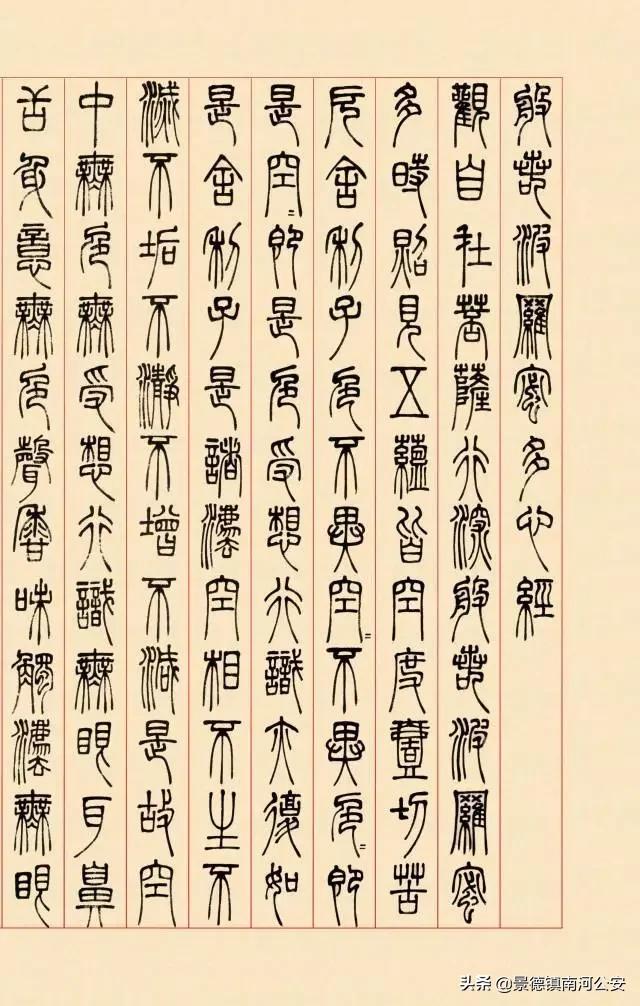 般若波羅蜜多心經
觀自在菩薩行深般若波羅蜜
多時照見五蘊皆空度壹切苦
厄舍利子色不異空〻不異色〻即
是空〻即是色受想行識亦復如
是舍利子是諸法空相不生不
滅不垢不瀞不增不減是故空
中無色無受想行識無眼耳鼻
舌身意無色聲香味觸法無眼
头条 @景德镇南河公安